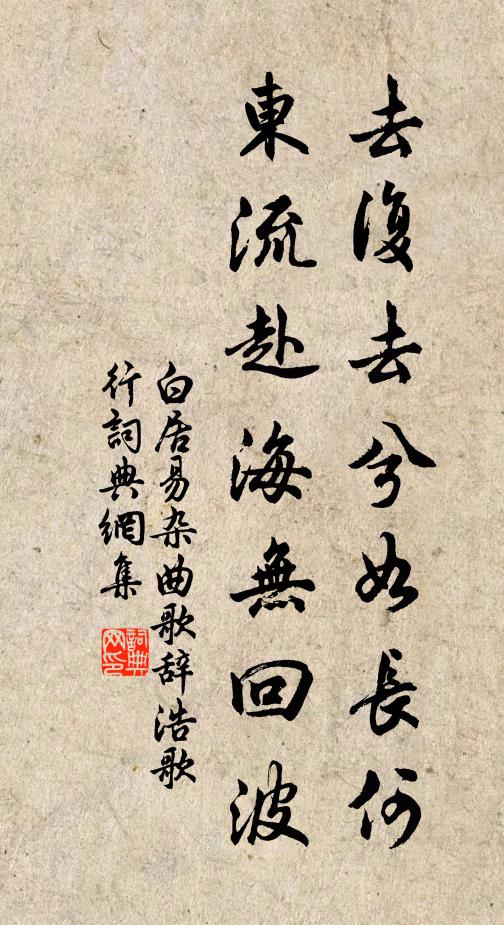 去復去兮如長何
東流赴海無回波
白居易杂曲歌辞浩歌
行詞典網集
詞典
网印